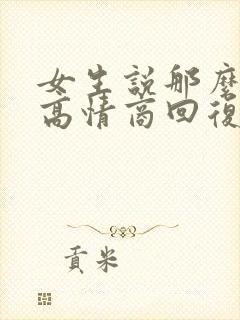 女生説那麽
高情商回復
貢米